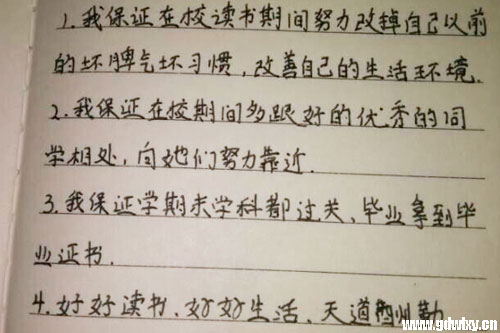 1.我保证在校读书期间努力改掉自己以前
的坏脾气坏习惯,改善自己的生活环境.
2.我保证在校期间多跟好的优秀的同
学相处,向她们努力靠近.
3.我保证学期末学科都过关,毕业拿到毕
业证书.
4.好好读书、好好生活、天道酬勤
www.gdwlxy.cn